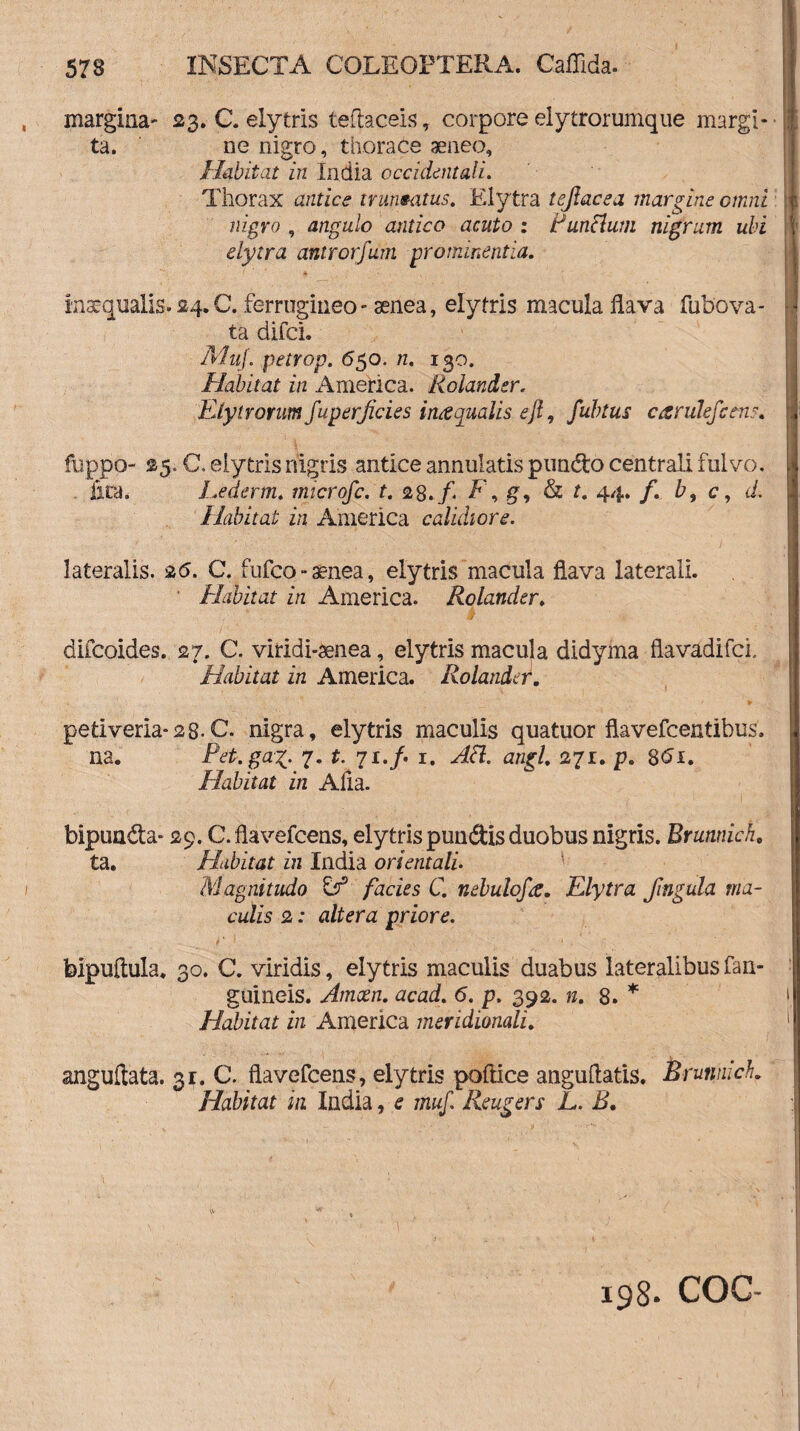 578 INSECTA COLEOPTERA. Caſſida.
margina- 23. C. elytris teſtaceis, corpore elytrorumque margi-
ta. ne nigro, thorace æneo,
Habitat in India occidentali.
Thorax antice truncatus. Elytra teſtacea margine omni
nigro, angulo antico acuto: Punctum nigrum ubi
elytra antrorſum prominentia.
inæqualis. 24. C. ferrugineo-ænea, elytris macula flava ſubova-
ta diſci.
Muſ. petrop. 650. n. 130.
Habitat in America. Rolander.
Elytrorum ſuperficies inæqualis eſt, ſubtus cærulеſcens.
ſuppo- 25. C. elytris nigris antice annulatis puncto centrali fulvo.
ſita. Lederm. microſc. t. 28. f. F, g, & t. 44. f. b, c, d.
Habitat in America calidiore.
lateralis. 26. C. fuſco-ænea, elytris macula flava laterali.
Habitat in America. Rolander.
diſcoides. 27. C. viridi-ænea, elytris macula didyma flava diſci.
Habitat in America. Rolander.
petiveria- 28. C. nigra, elytris maculis quatuor flaveſcentibus.
na. Pet. gaz. 7. t. 71. f. 1. Act. angl. 271. p. 861.
Habitat in Aſia.
bipuncta- 29. C. flaveſcens, elytris punctis duobus nigris. Brunnich.
ta. Habitat in India orientali.
Magnitudo & facies C. nebuloſæ. Elytra ſingula ma-
culis 2: altera priore.
bipuſtula. 30. C. viridis, elytris maculis duabus lateralibus ſan-
guineis. Amœn. acad. 6. p. 392. n. 8. *
Habitat in America meridionali.
anguſtata. 31. C. flaveſcens, elytris poſtice anguſtatis. Brunnich.
Habitat in India, e muſ. Reugers L. B.
198. COC-